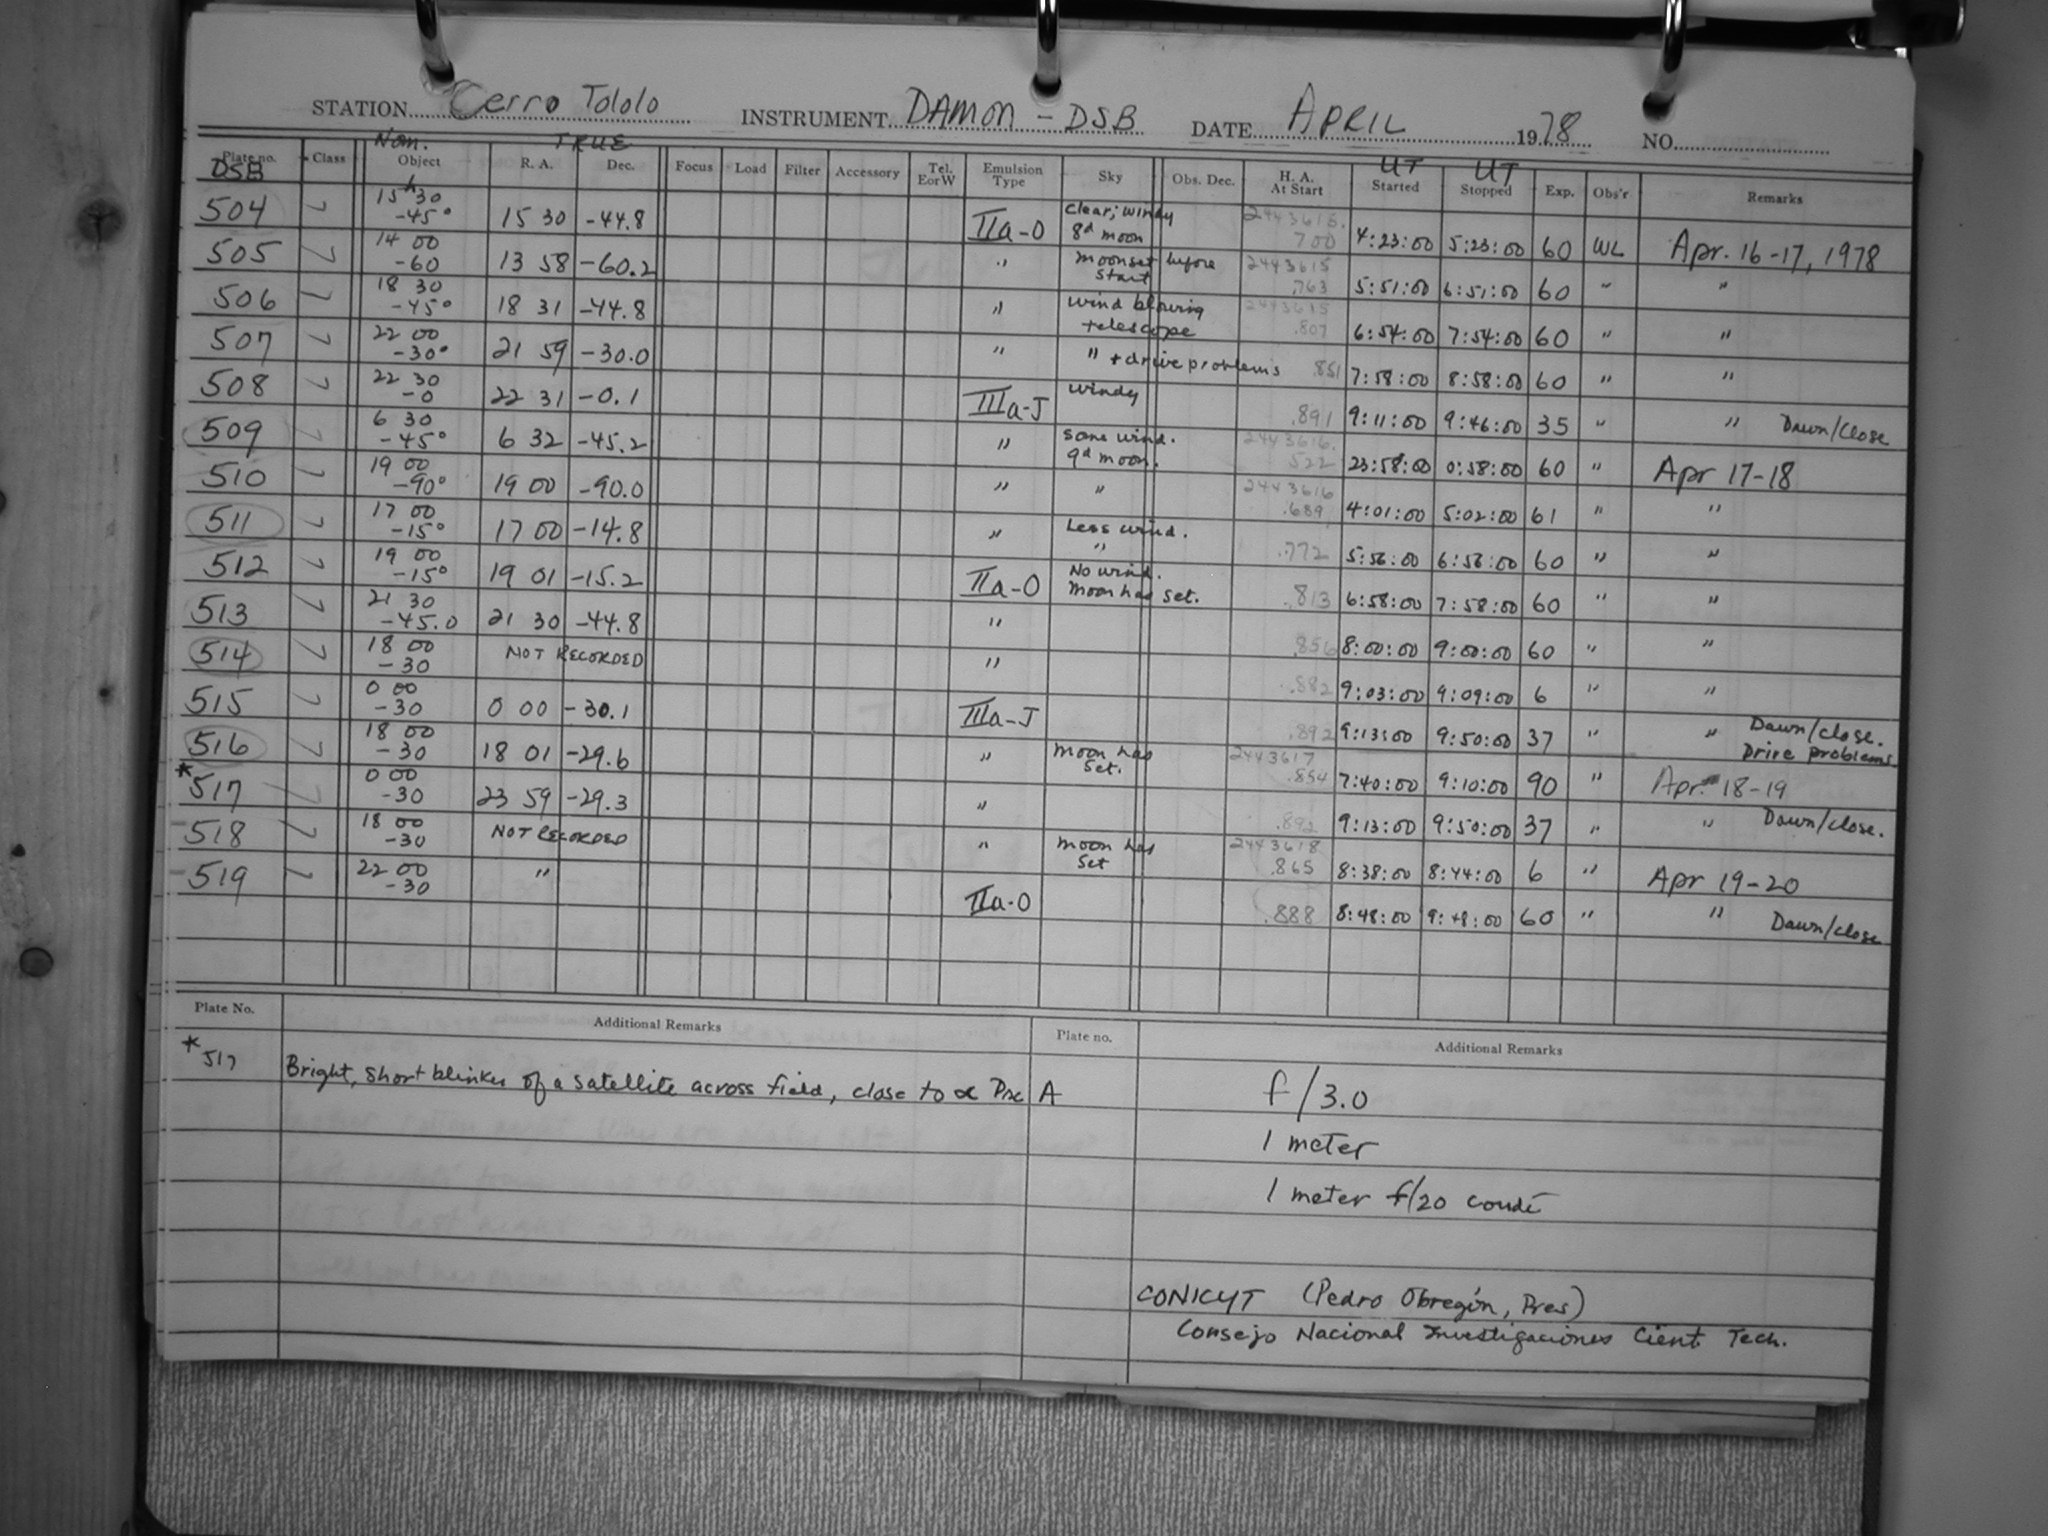 STATION Cerro Tololo INSTRUMENT DAMON - DSB DATE APRIL 1978 NO.
Nom. TRUE UT UT
Plate no. Class Object R. A. Dec. Focus Load Filter Accessory Tel. E or W Emulsion Type Sky Obs. Dec. H. A. At Start Started Stopped Exp. Obs'r Remarks
DSB
504 7 15h 30 -45° 15 30 -44.8 IIa-O clear; windy 8d moon 700 4:23:00 5:23:00 60 WL Apr. 16-17, 1978
505 7 14 00 -60 13 58 -60.2 " moonset before start 2443615 .763 5:51:00 6:51:00 60 " "
506 7 18 30 -45° 18 31 -44.8 " wind blowing telescope 2443615 .807 6:54:00 7:54:00 60 " "
507 7 22 00 -30° 21 59 -30.0 " " + drive problems .851 7:58:00 8:58:00 60 " "
508 7 22 30 -0 22 31 -0.1 IIIa-J windy .891 9:11:00 9:46:00 35 " " Dawn/close
509 7 6 30 -45° 6 32 -45.2 " some wind. 9d moon. 2443616. 522 23:58:00 0:58:00 60 " Apr 17-18
510 7 19 00 -90° 19 00 -90.0 " " 2443616 .689 4:01:00 5:02:00 61 " "
511 7 17 00 -15° 17 00 -14.8 " Less wind. " .772 5:56:00 6:56:00 60 " "
512 7 19 00 -15° 19 01 -15.2 IIa-O No wind. Moon has set. .813 6:58:00 7:58:00 60 " "
513 7 21 30 -45.0 21 30 -44.8 " .856 8:00:00 9:00:00 60 " "
514 7 18 00 -30 NOT RECORDED " .882 9:03:00 9:09:00 6 " "
515 7 0 00 -30 0 00 -30.1 IIIa-J .892 9:13:00 9:50:00 37 " " Dawn/close. Drive problems
516 7 18 00 -30 18 01 -29.6 " Moon has set. 2443617 .854 7:40:00 9:10:00 90 " Apr. 18-19
*517 7 0 00 -30 23 59 -29.3 " .892 9:13:00 9:50:00 37 " " Dawn/close.
518 7 18 00 -30 NOT RECORDED " Moon has set 2443618 .865 8:38:00 8:44:00 6 " Apr 19-20
519 7 22 00 -30 " IIa-O .888 8:48:00 9:48:00 60 " " Dawn/close
Plate No. Additional Remarks Plate no. Additional Remarks
*517 Bright, short blinker of a satellite across field, close to α PsA f/3.0
1 meter
1 meter f/20 coudé
CONICYT (Pedro Obregón, Pres)
Consejo Nacional Investigaciones Cient Tech.